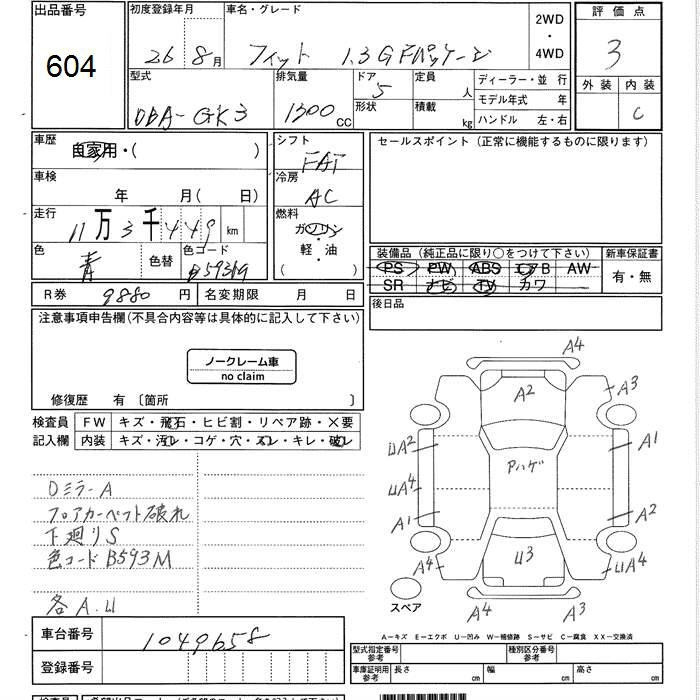 出品番号 初度登録年月 車名・グレード 2WD ・ 4WD 評価点
604 26 8月 フィット 1.3G Fパッケージ 3
型式 排気量 ドア 定員 人 ディーラー・並 行 外装 内装
DBA-GK3 1300 CC 5 形状 積載 kg モデル年式 年 C
ハンドル 左・右
車歴 自家用・( ) シフト FAT セールスポイント (正常に機能するものに限ります)
車検 年 月( 日) 冷房 AC
走行 11万3千449 km 燃料 ガソリン
色 青 色替 色コード B593M 軽・油 ( )
装備品 (純正品に限り○をつけて下さい) 新車保証書
PS PW ABS エアB AW 有・無
SR ナビ TV カワ
R券 9880 円 名変期限 月 日 後日品
注意事項申告欄(不具合内容等は具体的に記入して下さい)
ノークレーム車
no claim
修復歴 有 〔箇所 〕
検査員 FW キズ・飛石・ヒビ割・リペア跡・×要
記入欄 内装 キズ・汚レ・コゲ・穴・スレ・キレ・破レ
Dミラー A
フロアカーペット破れ
下廻りS
色コード B593M
各A.U
A4
A2 A3
UA2 A1
Pハゲ
UA4
A1 A2
U3
A4 UA4
スペア A4 A3
A-キズ E-エクボ U-凹み W-補修跡 S-サビ C-腐食 XX-交換済
車台番号 1049658
登録番号
型式指定番号 参考 種別区分番号 参考
車庫証明用 参考 長さ cm 幅 cm 高さ cm